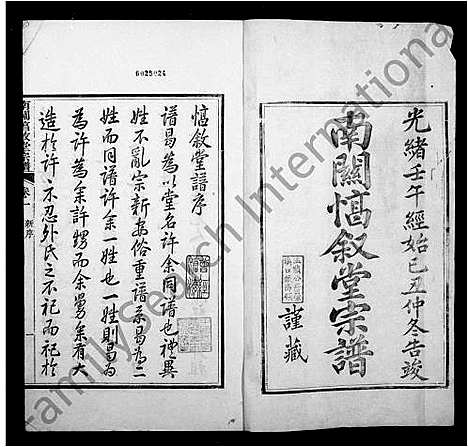 光緒壬午經始己丑仲冬告竣
南關惇叙堂宗譜
謹藏
6025024
惇敘堂譜序
譜曷為以堂名許余同譜也禮異
姓不亂宗新安俗重譜系曷為二
姓而同譜許余一姓也一姓則曷為
為許為余許甥而余舅余有大
造於許許不忍外氏之不祀而祀於
新序
FamilySearch International